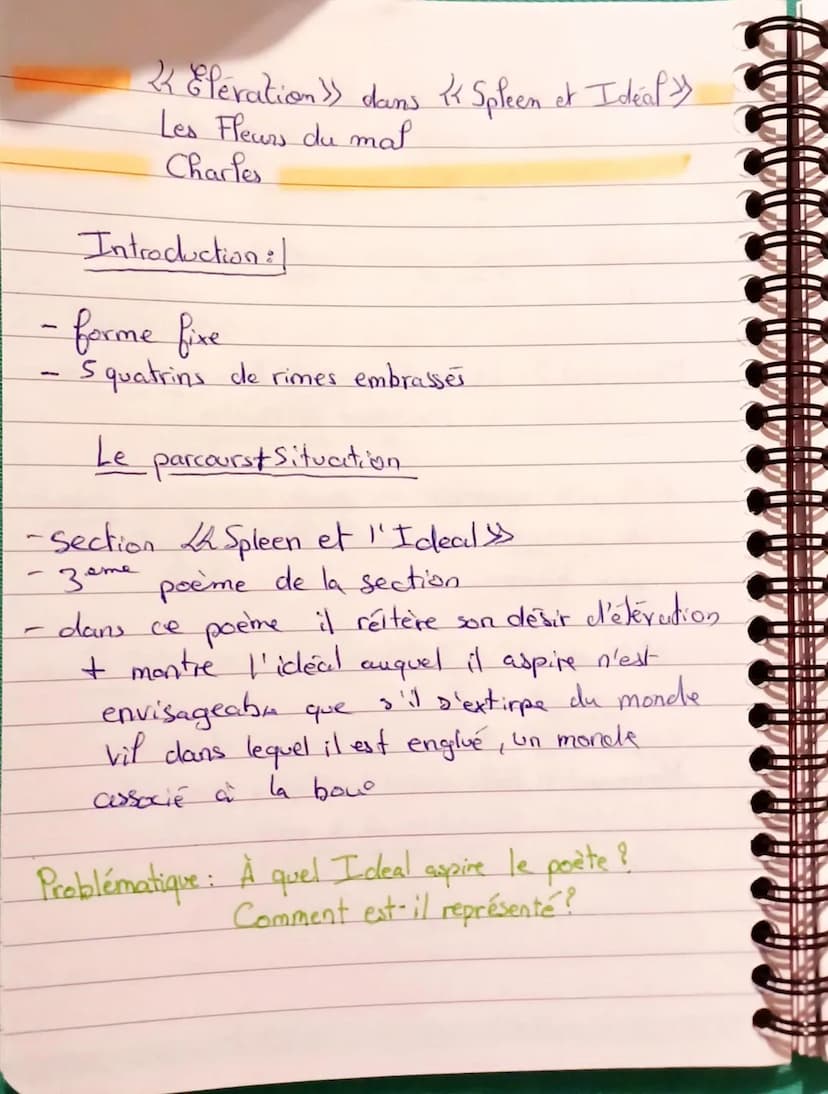 « Élévation » dans « Spleen et Idéal »
Les Fleurs du mal
Charles
Introduction :
- forme fixe
- 5 quatrins de rimes embrassés
Le parcours + Situation
- section « Spleen et l'Ideal »
- 3eme poème de la section
- dans ce poème il réitère son désir d'élévation
+ montre l'idéal auquel il aspire n'est
envisageable que s'il s'extirpe du monde
vil dans lequel il est englué, un monde
associé à la boue
Problématique : À quel Ideal aspire le poète ?
Comment est-il représenté ?